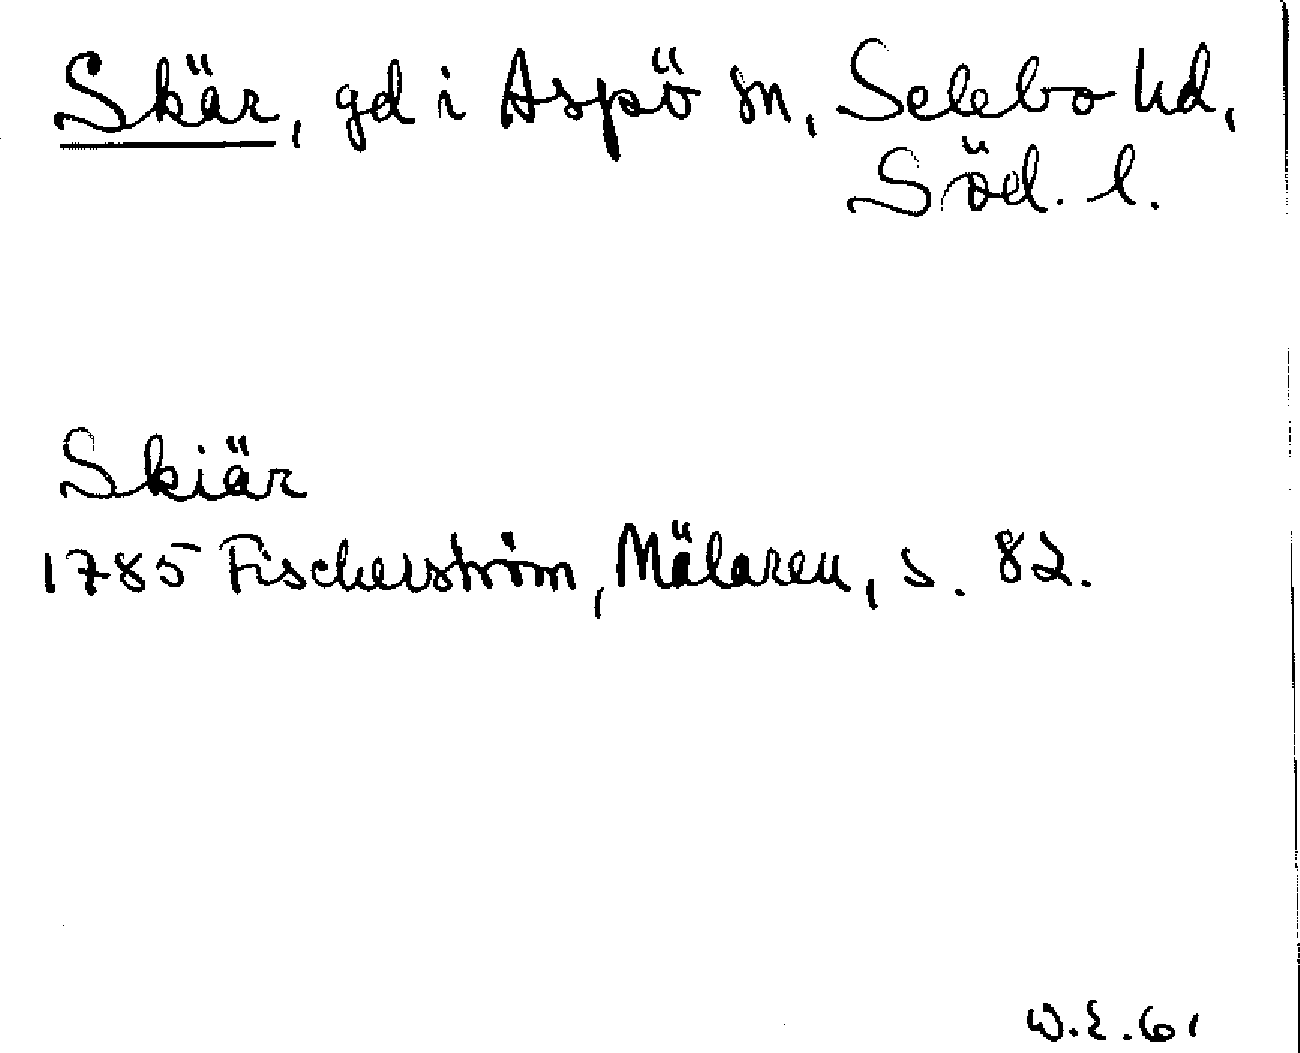 Skär, gd i Aspö sn, Selebo hd,
Söd. l.
Skiär
1785 Fischerström, Mälaren, s. 82.
W.E. 61